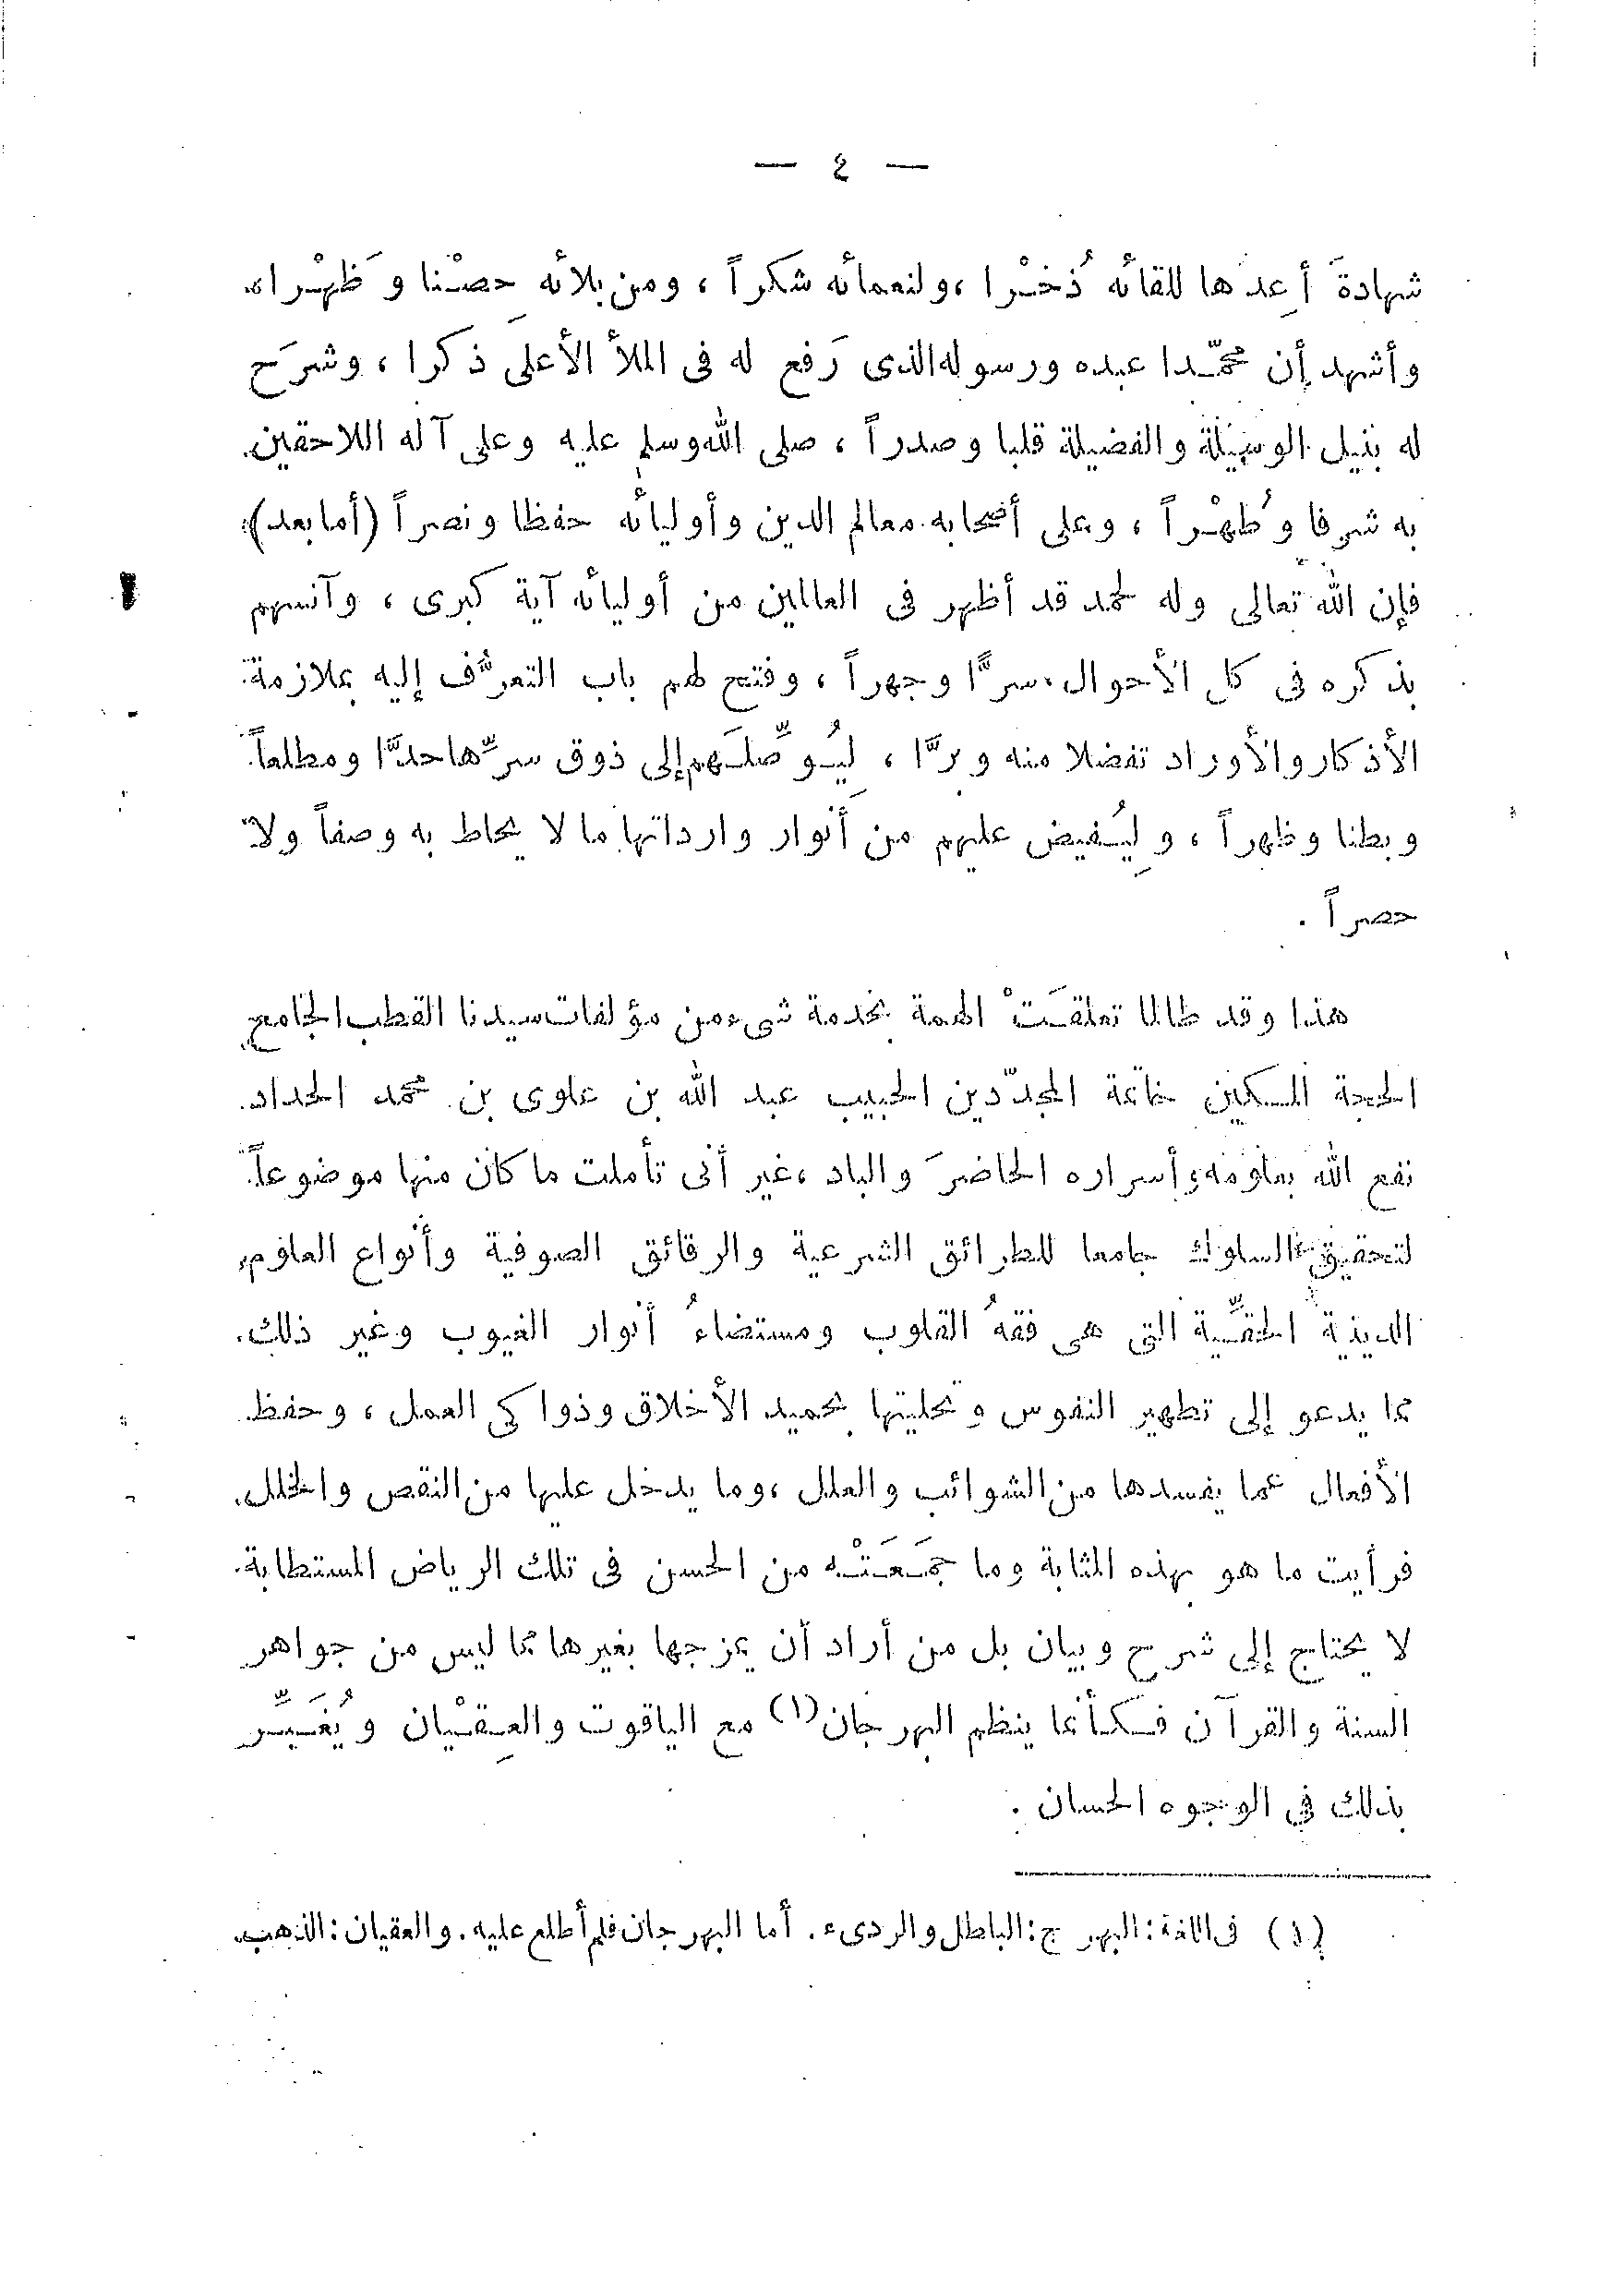 — ٤ —
شهادةَ أعِدها للقائه ذُخْرا ، ولنعمائه شكراً ، ومن بلائه حِصْنا وَظَهْرا ،
وأشهد أن محمّدا عبده ورسوله الذى رَفع له فى الملأ الأعلى ذكرا ، وشرَح
له بنيل الوسيلة والفضيلة قلبا وصدراً ، صلى الله وسلم عليه وعلى آله اللاحقين
به شرفا وطُهْراً ، وعلى أصحابه معالم الدين وأوليائه حفظا ونصراً ( أما بعد )
فإن الله تعالى وله الحمد قد أظهر فى العالمين من أوليائه آية كبرى ، وآنسهم
بذكره فى كل الأحوال سرًّا وجهراً ، وفتح لهم باب التعرُّف إليه بملازمة
الأذكار والأوراد تفضلا منه وبرًّا ، ليُوَصِّلَهم إلى ذوق سرِّها حدًّا ومطلعاً
وبطنا وظهراً ، ولِيُفيض عليهم من أنوار وارداتها ما لا يحاط به وصفاً ولا
حصراً .
هذا وقد طالما تعلقَتْ الهمة بخدمة شىء من مؤلفات سيدنا القطب الجامع
الحجة المكين خاتمة المجدّدين الحبيب عبد الله بن علوى بن محمد الحداد
نفع الله بعلومه وأسراره الحاضرَ والباد ، غير أنى تأملت ما كان منها موضوعاً
لتحقيق السلوك جامعا للطرائق الشرعية والرقائق الصوفية وأنواع العلوم
الدينية الحقِّية التى هى فقهُ القلوب ومستضاءُ أنوار الغيوب وغير ذلك
مما يدعو إلى تطهير النفوس وتحليتها بحميد الأخلاق وذواكى العمل ، وحفظ
الأفعال عما يفسدها من الشوائب والعلل ، وما يدخل عليها من النقص والخلل
فرأيت ما هو بهذه المثابة وما جمَعَتْه من الحسن فى تلك الرياض المستطابة
لا يحتاج إلى شرح وبيان بل من أراد أن يمزجها بغيرها مما ليس من جواهر
السنة والقرآن فكأنما ينظم البهرجان (١) مع الياقوت والعِقْيان ويُغَبِّر
بذلك في الوجوه الحسان .
(١) فى اللغة : البهرج : الباطل والردىء . أما البهرجان فلم أطلع عليه . والعقيان : الذهب